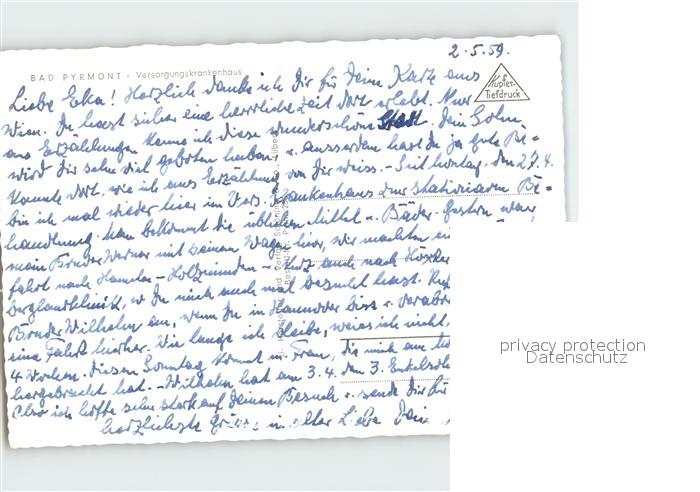 2.5.59.
BAD PYRMONT - Versorgungskrankenhaus
Kupfer-Tiefdruck
Liebe Eka! Herzlich danke ich Dir für Deine Karte aus
Wien. Du hast sicher eine herrliche Zeit dort erlebt. Nur
aus Erzählungen kenne ich diese wunderschöne Stadt. Dein Sohn
wird Dir sehr viel geboten haben u. ausserdem hast Du ja gute Be-
kannte dort, wie ich aus Erzählung von Dir weiss. - Seit Montag, den 27.4.
bin ich mal wieder hier im Vers. Krankenhaus zur stationären Be-
handlung. Man bekommt die üblichen Mittel u. Bäder. Gestern war
mein Bruder Werner mit seinem Wagen hier, wir machten ei
fahrt nach Hameln - Holzminden - kurz auch nach Höxter
berglandklinik, wo Du mich auch mal besucht hast. Ruf
Bruder Wilhelm an, wenn Du in Hannover bist u. verabre
eine Fahrt hierher. Wie lange ich bleibe, weiss ich nicht,
4 Wochen. Diesen Sonntag kommt m. Frau, die mich am Mo
hergebracht hat. - Wilhelm hat am 3.4. den 3. Enkelsoh
Also ich hoffe sehr stark auf Deinen Besuch u. sende Dir für
herzlichste Grüsse in alter Liebe Dein
privacy protection
Datenschutz